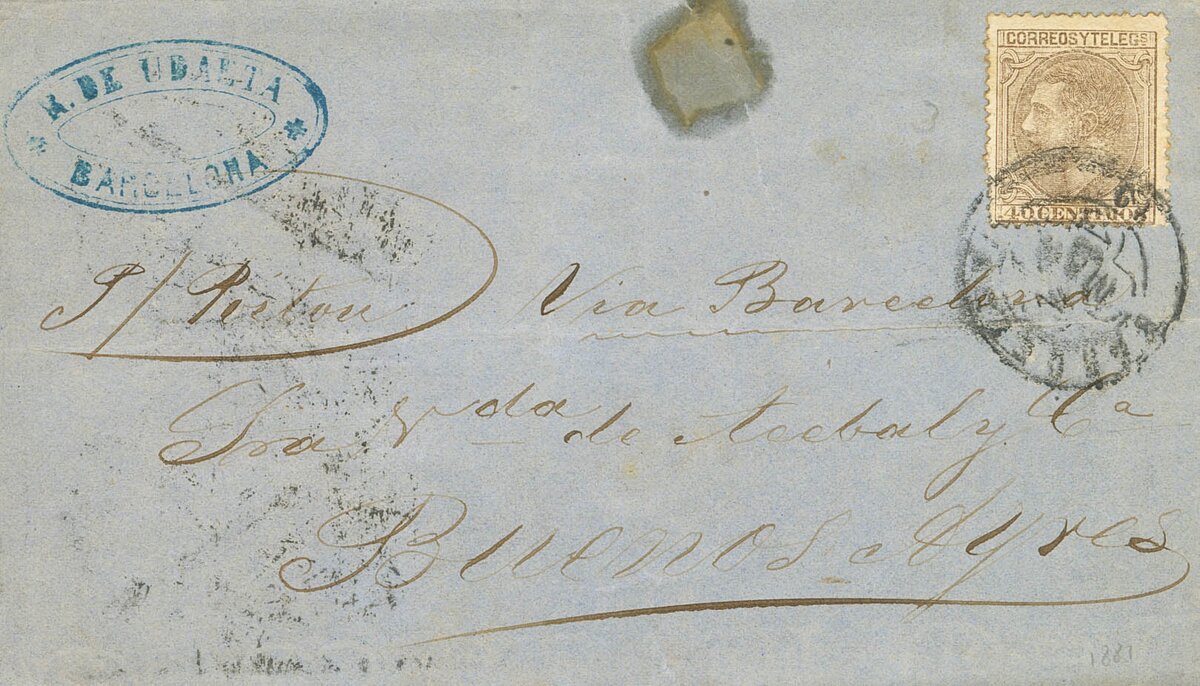 R. DE UDAETA
BARCELONA
CORREOS Y TELEGS
40 CENTIMOS
P/ Poitou Via Barcelona
Sra Vda de Acebal y Ca
Buenos Ayres
1881